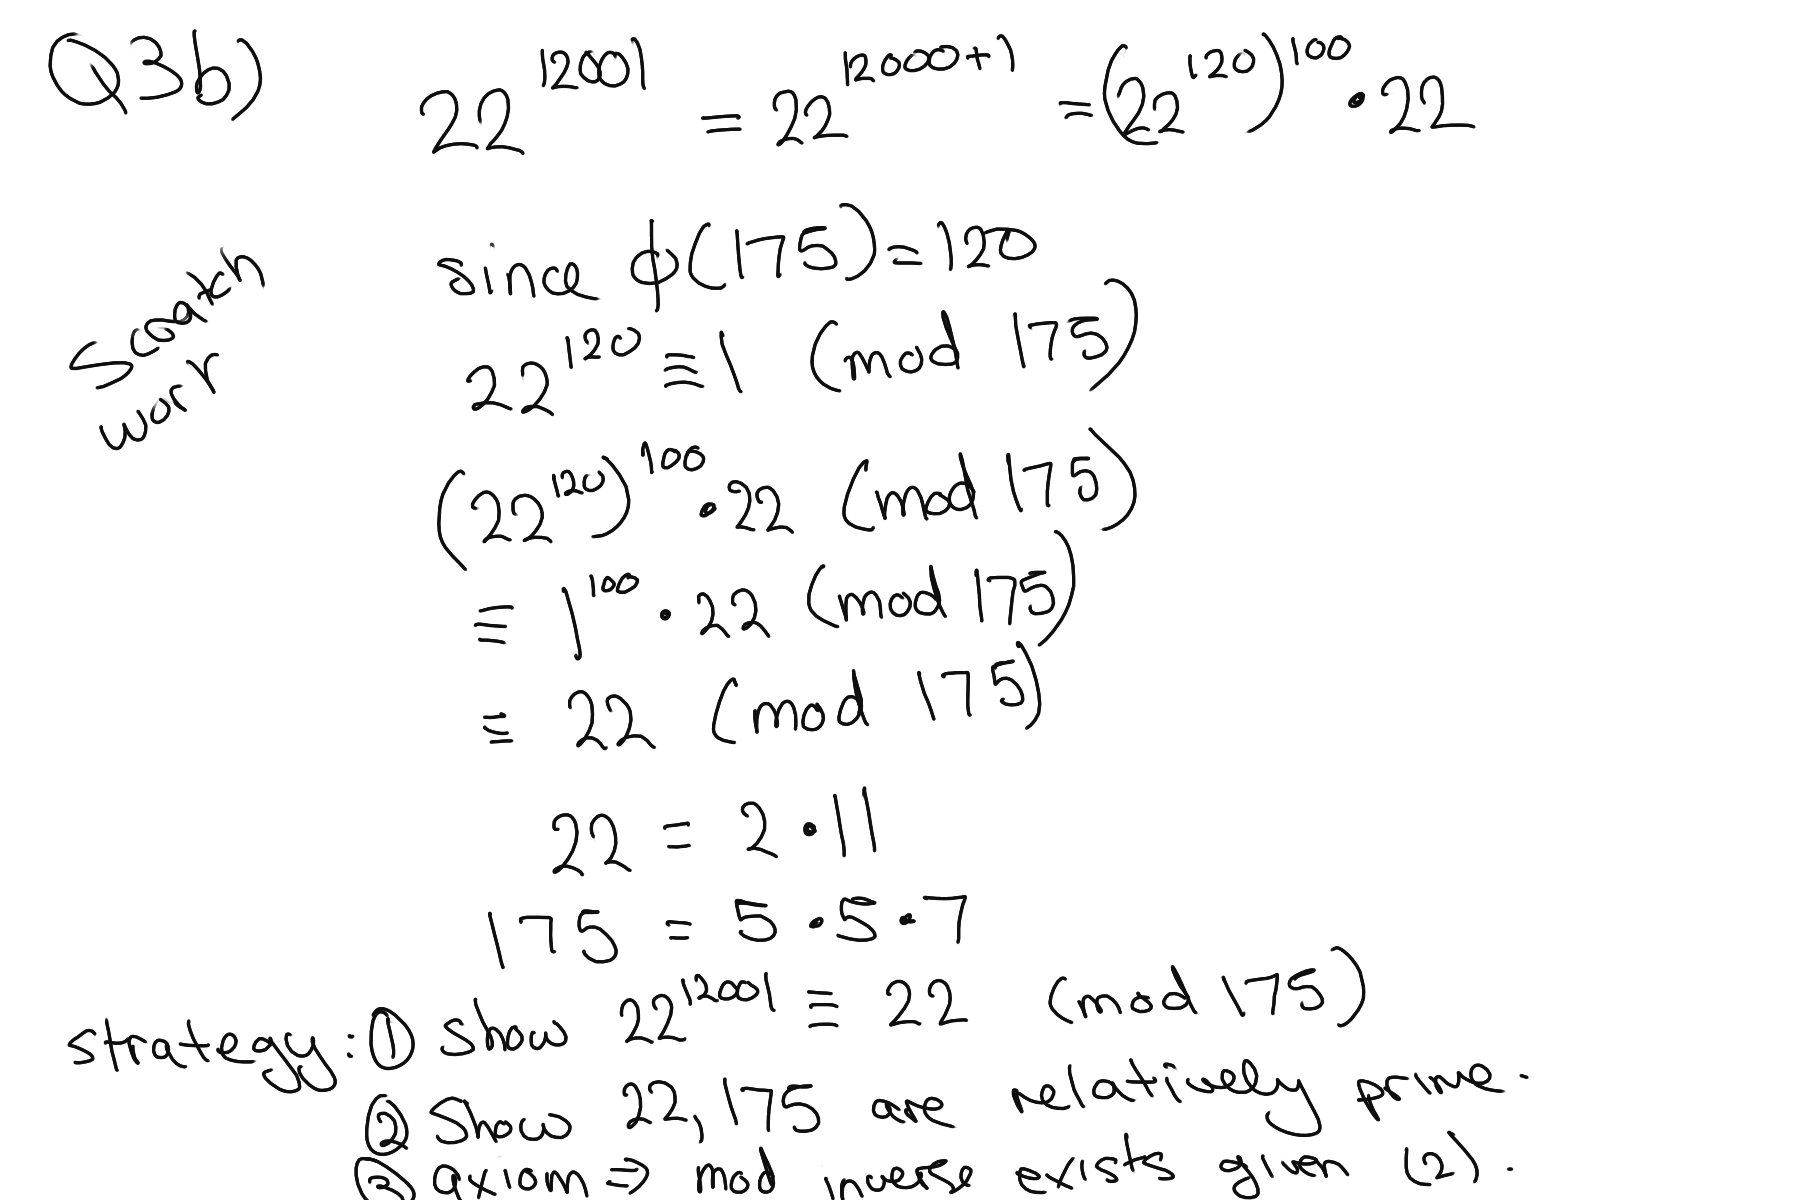 Q3b) 22^12001 = 22^12000+1 = (22^120)^100 · 22
Scratch work
since ϕ(175) = 120
22^120 ≡ 1 (mod 175)
(22^120)^100 · 22 (mod 175)
≡ 1^100 · 22 (mod 175)
≡ 22 (mod 175)
22 = 2 · 11
175 = 5 · 5 · 7
strategy: ① Show 22^12001 ≡ 22 (mod 175)
② Show 22, 175 are relatively prime.
③ axiom ⇒ mod inverse exists given (2).